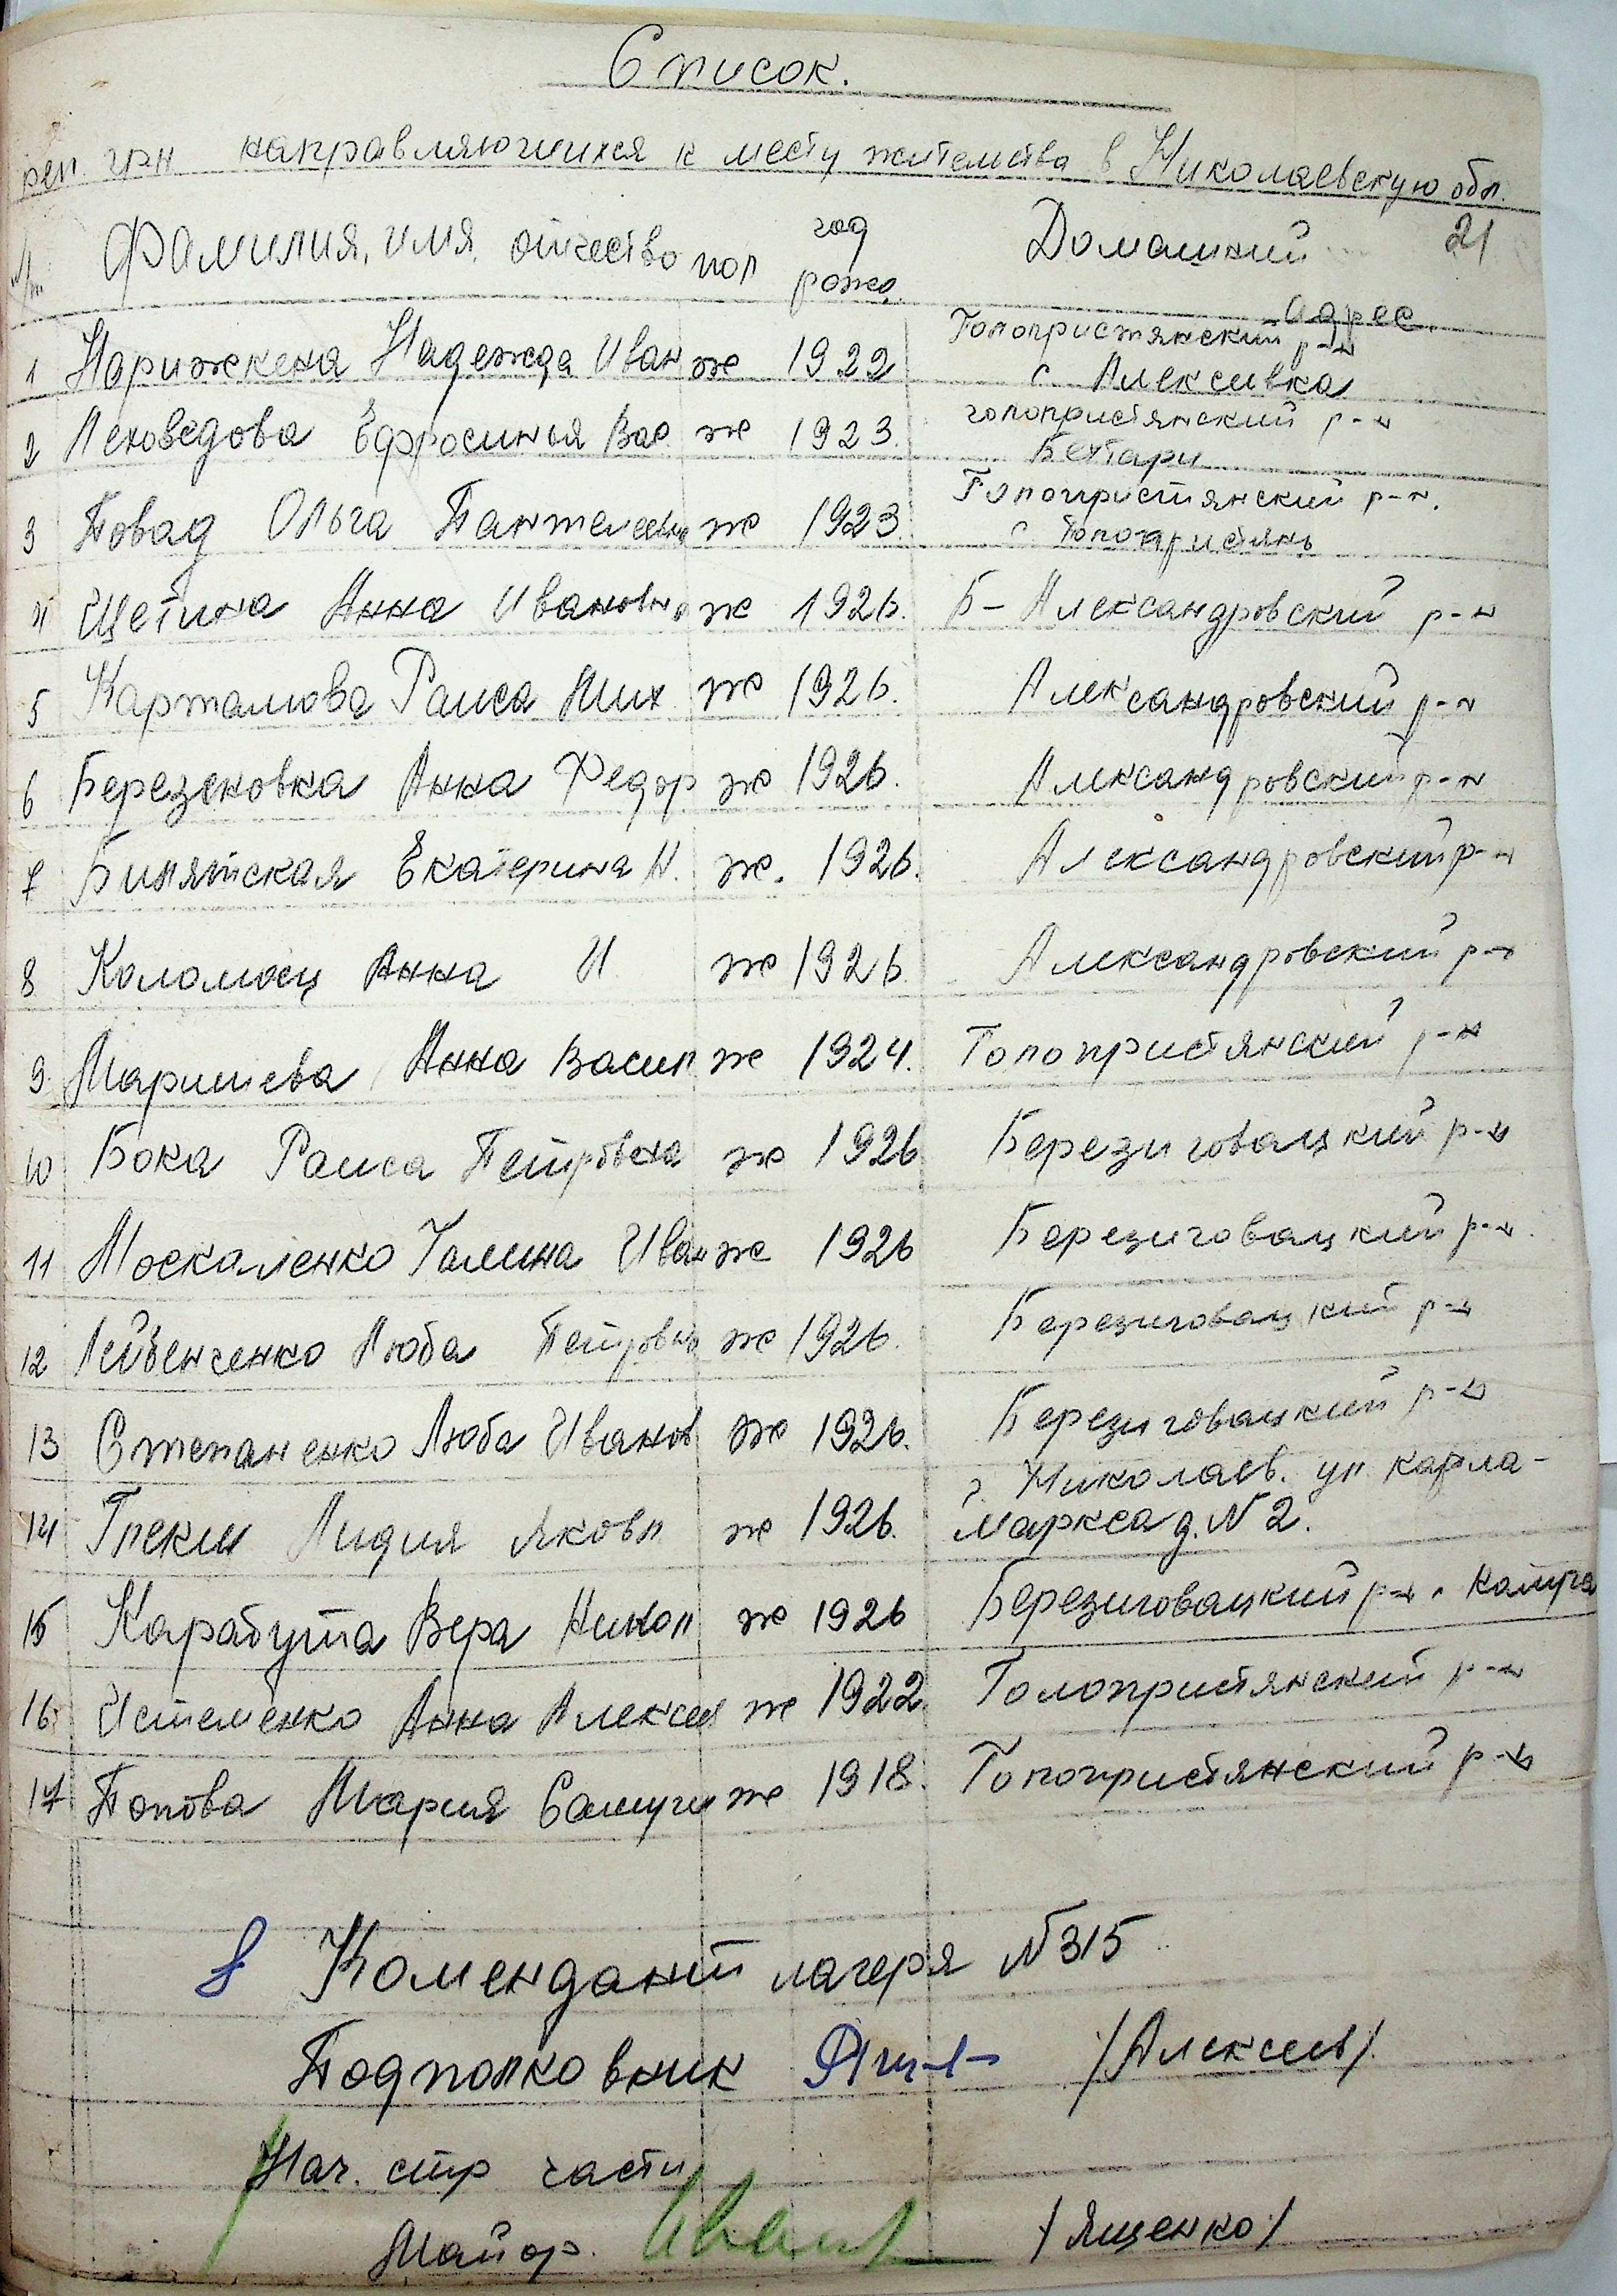 Список.
реп. грн направляющихся к месту жительства в Николаевскую обл.
21
Фамилия, имя, отчество пол год рожд. Домашний Адрес.
1 Нарижнена Надежда Иван ж 1922 Голопристянский р-н с Алексеивка
2 Леховедова Ефросинья Вас ж 1923. голопристянский р-н Бехтари
3 Повад Ольга Пантелеевна ж 1923. Голопристянский р-н. с Голопристянь
4 Щетина Анна Ивановна ж 1926. Б-Александровский р-н
5 Карталова Раиса Мих ж 1926. Александровский р-н
6 Березековка Анна Федор ж 1926. Александровский р-н
7 Билятская Екатерина Н. ж. 1926. Александровский р-н
8 Коломоец Анна И ж 1926 Александровский р-н
9. Маришева Анна Васил ж 1924. Голопристянский р-н
10 Бока Раиса Петровна ж 1926 Березниговацкий р-н
11 Москаленко Галина Иван ж 1926 Березиговацкий р-н.
12 Лейвенченко Люба Петровна ж 1926. Березиговацкий р-н
13 Степаненко Люба Иванов ж 1926. Березиговацкий р-н
14 Глеким Лидия Яковл ж 1926. г. Николаев. ул. Карла-Маркса д. N 2.
15 Карабута Вера Никол ж 1926 Березиговацкий р-н
16. Истеменко Анна Алексее ж 1922. Голопристянский р-н
17 Попова Мария Самуил ж 1918. Голопристянский р-н
Комендант лагеря N315
Подполковник /Алексеев/
Нач. стр части
Майор. /Ященко/